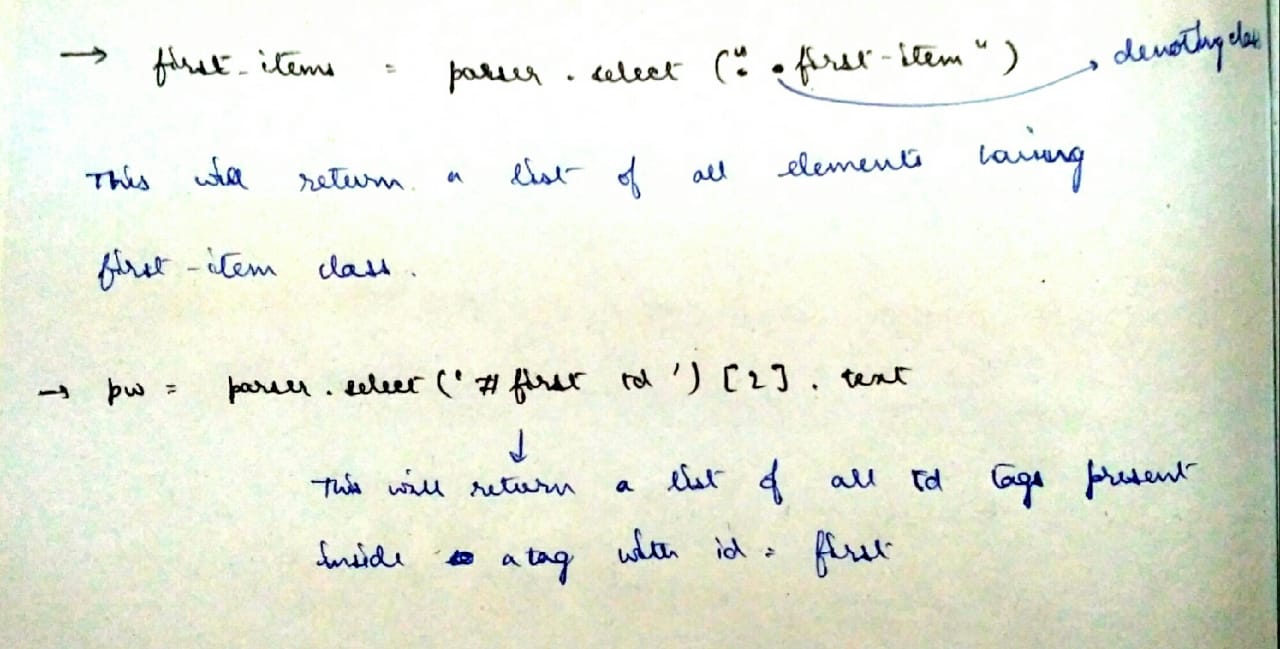 → first-items = parser.select (". .first-item") → denoting class
This will return a list of all elements having
first-item class.
→ pw = parser.select ('#first td') [2].text
↓
This will return a list of all td tags present
inside a tag with id = first